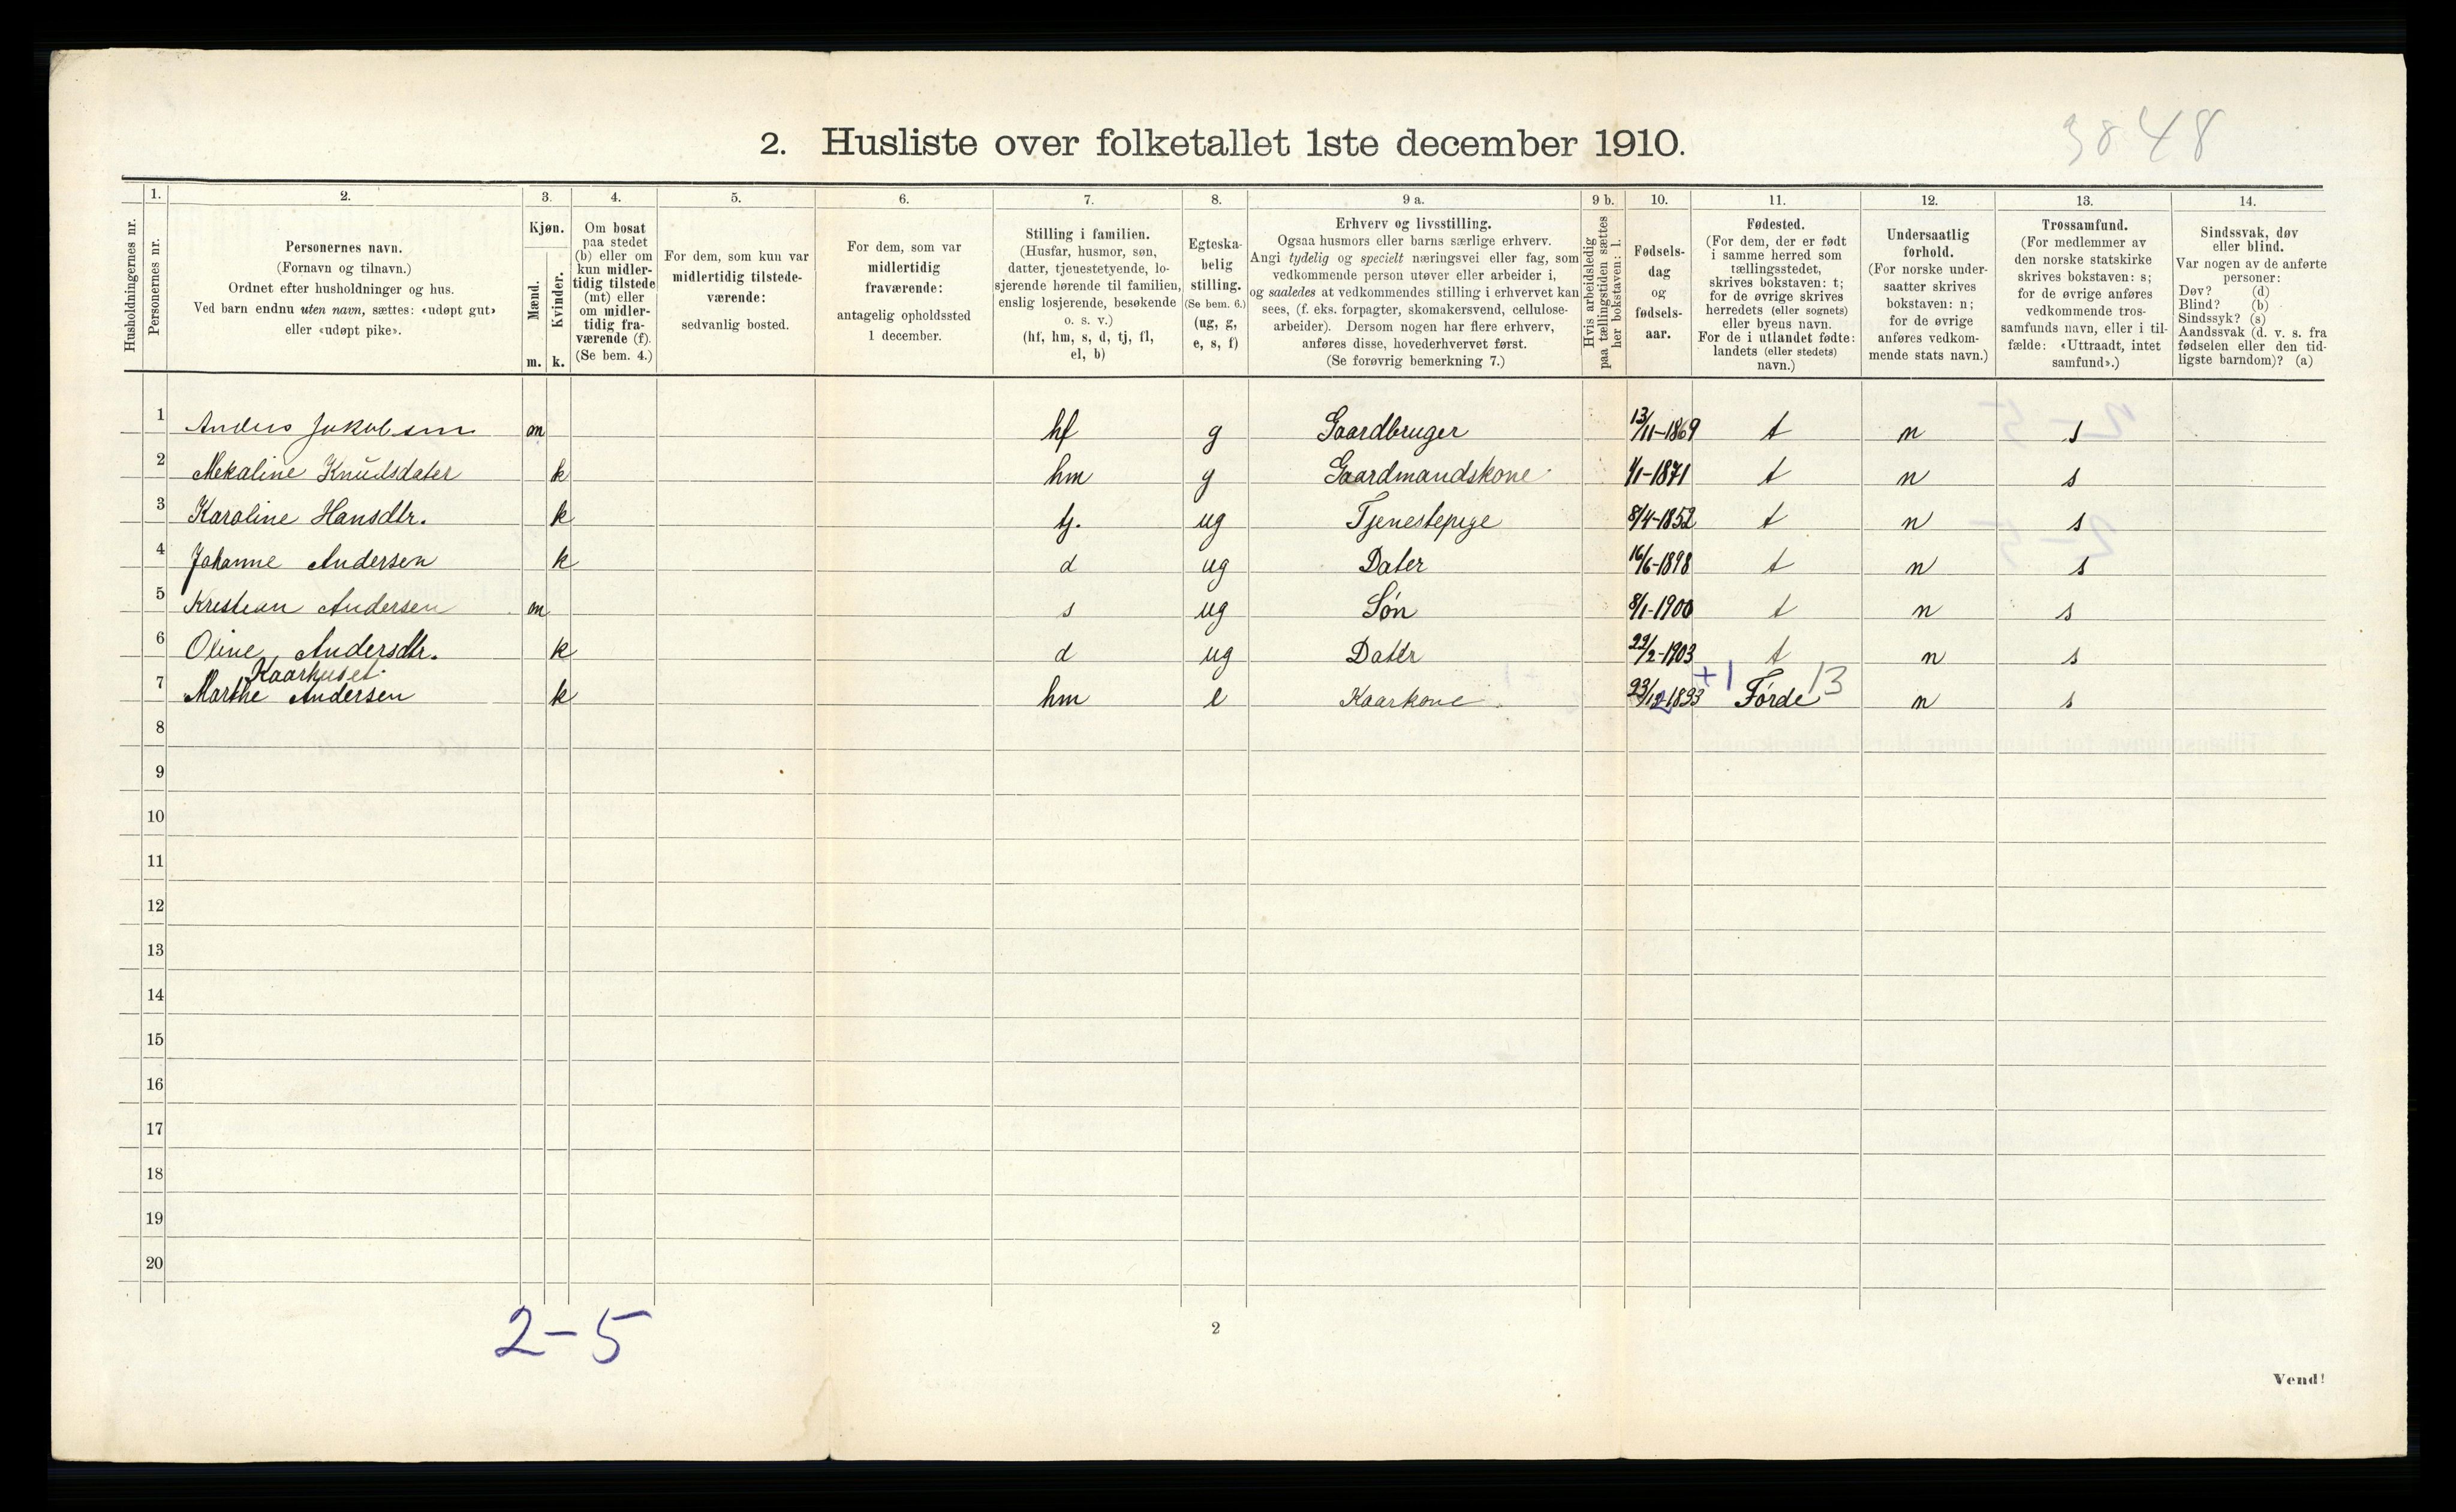 3848
2. Husliste over folketallet 1ste december 1910.
Husholdningernes nr.
1.
Personernes nr.
2.
Personernes navn.
(Fornavn og tilnavn.)
Ordnet efter husholdninger og hus.
Ved barn endnu uten navn, sættes: «udøpt gut»
eller «udøpt pike».
3.
Kjøn.
Mænd.
Kvinder.
m. k.
4.
Om bosat
paa stedet
(b) eller om
kun midler-
tidig tilstede
(mt) eller
om midler-
tidig fra-
værende (f).
(Se bem. 4.)
5.
For dem, som kun var
midlertidig tilstede-
værende:
sedvanlig bosted.
6.
For dem, som var
midlertidig
fraværende:
antagelig opholdssted
1 december.
7.
Stilling i familien.
(Husfar, husmor, søn,
datter, tjenestetyende, lo-
sjerende hørende til familien,
enslig losjerende, besøkende
o. s. v.)
(hf, hm, s, d, tj, fl,
el, b)
8.
Egteska-
belig
stilling.
(Se bem. 6.)
(ug, g,
e, s, f)
9 a.
Erhverv og livsstilling.
Ogsaa husmors eller barns særlige erhverv.
Angi tydelig og specielt næringsvei eller fag, som
vedkommende person utøver eller arbeider i,
og saaledes at vedkommendes stilling i erhvervet kan
sees, (f. eks. forpagter, skomakersvend, cellulose-
arbeider). Dersom nogen har flere erhverv,
anføres disse, hovederhvervet først.
(Se forøvrig bemerkning 7.)
9 b.
Hvis arbeidsledig
paa tællingstiden sættes
her bokstaven: l.
10.
Fødsels-
dag
og
fødsels-
aar.
11.
Fødested.
(For dem, der er født
i samme herred som
tællingsstedet,
skrives bokstaven: t;
for de øvrige skrives
herredets (eller sognets)
eller byens navn.
For de i utlandet fødte:
landets (eller stedets)
navn.)
12.
Undersaatlig
forhold.
(For norske under-
saatter skrives
bokstaven: n;
for de øvrige
anføres vedkom-
mende stats navn.)
13.
Trossamfund.
(For medlemmer av
den norske statskirke
skrives bokstaven: s;
for de øvrige anføres
vedkommende tros-
samfunds navn, eller i til-
fælde: «Uttraadt, intet
samfund».)
14.
Sindssvak, døv
eller blind.
Var nogen av de anførte
personer:
Døv? (d)
Blind? (b)
Sindssyk? (s)
Aandssvak (d. v. s. fra
fødselen eller den tid-
ligste barndom)? (a)
1 Anders Jakobsen m hf g Gaardbruger 13/11-1869 t n s
2 Mekaline Knudsdater k hm g Gaardmandskone 1/1-1871 t n s
3 Karoline Hansdtr. k tj. ug Tjenestepige 8/4-1852 t n s
4 Johanne Andersen k d ug Dater 16/6-1898 t n s
5 Kristian Andersen m s ug Søn 8/1-1900 t n s
6 Oline Andersdtr. k d ug Datter 22/2-1903 t n s
Kaarhuset
+1 13
7 Marthe Andersen k hm e Kaarkone 23/12-1833 Førde n s
8
9
10
11
12
13
14
15
16
17
18
19
20
2-5
2
Vend!